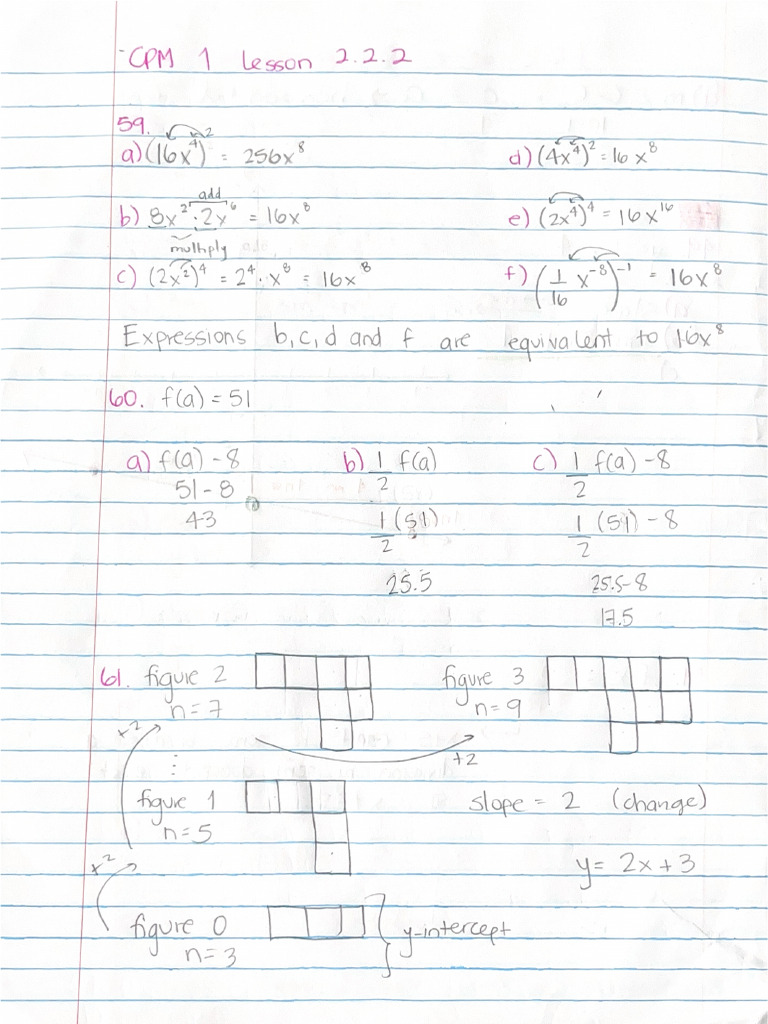 CPM 1 Lesson 2.2.2
59.
a) (16x⁴)² = 256x⁸
d) (4x⁴)² = 16x⁸
add
b) 8x² · 2x⁶ = 16x⁸
e) (2x⁴)⁴ = 16x¹⁶
multiply
c) (2x²)⁴ = 2⁴ · x⁸ = 16x⁸
f) (1/16 x⁻⁸)⁻¹ = 16x⁸
Expressions b, c, d and f are equivalent to 16x⁸
60. f(a) = 51
a) f(a) - 8
51 - 8
43
b) 1/2 f(a)
1/2 (51)
25.5
c) 1/2 f(a) - 8
1/2 (51) - 8
25.5 - 8
17.5
61. figure 2
n = 7
figure 3
n = 9
+2
+2
figure 1
n = 5
slope = 2 (change)
y = 2x + 3
+2
figure 0
n = 3
y-intercept